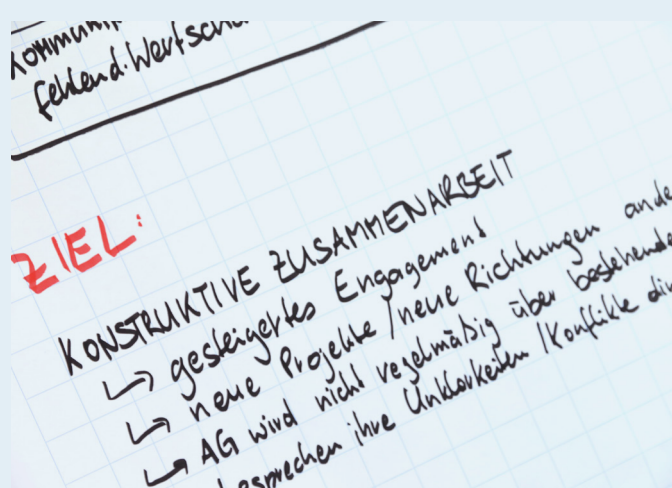 Kommuni
fehlend. Wertschä
ZIEL:
KONSTRUKTIVE ZUSAMMENARBEIT
↳ gesteigertes Engagement
↳ neue Projekte / neue Richtungen ande
↳ AG wird nicht regelmäßig über bestehende
besprechen ihre Unklarheiten / Konflikte di